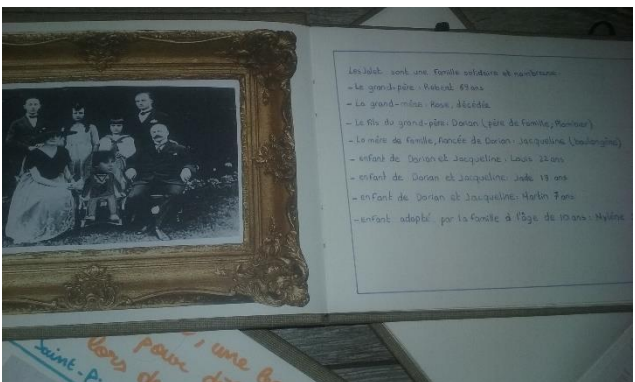 Les Jolat : sont une famille solidaire et nombreuse
- Le grand-père : Robert 89 ans
- La grand-mère : Rose, décédée
- Le fils du grand-père : Dorian (père de famille, Plombier)
- La mère de famille, fiancée de Dorian : Jacqueline (boulangère)
- enfant de Dorian et Jacqueline : Louis 22 ans
- enfant de Dorian et Jacqueline : Jade 17 ans
- enfant de Dorian et Jacqueline : Martin 7 ans
- enfant adopté par la famille à l'âge de 10 ans : Mylène
, une
lors de pour
Saint-Pi